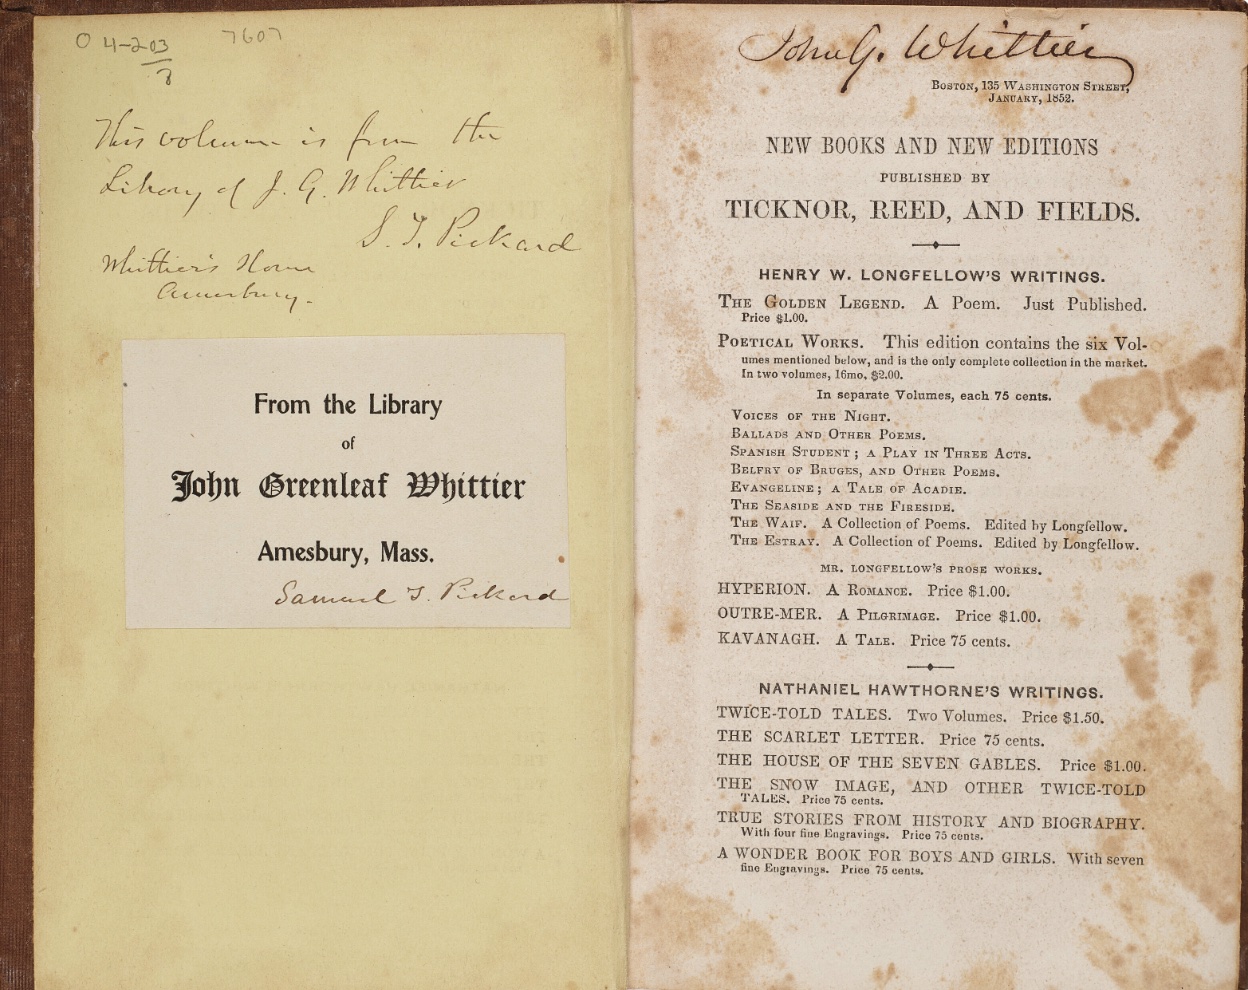 O 4-203
7607
8
This volume is from the
Library of J. G. Whittier
S. T. Pickard
Whittier's Home
Amesbury.
From the Library
of
John Greenleaf Whittier
Amesbury, Mass.
Samuel T. Pickard
John G. Whittier
BOSTON, 135 WASHINGTON STREET,
JANUARY, 1852.
NEW BOOKS AND NEW EDITIONS
PUBLISHED BY
TICKNOR, REED, AND FIELDS.
HENRY W. LONGFELLOW'S WRITINGS.
THE GOLDEN LEGEND. A Poem. Just Published.
Price $1.00.
POETICAL WORKS. This edition contains the six Vol-
umes mentioned below, and is the only complete collection in the market.
In two volumes, 16mo, $2.00.
In separate Volumes, each 75 cents.
VOICES OF THE NIGHT.
BALLADS AND OTHER POEMS.
SPANISH STUDENT; A PLAY IN THREE ACTS.
BELFRY OF BRUGES, AND OTHER POEMS.
EVANGELINE; A TALE OF ACADIE.
THE SEASIDE AND THE FIRESIDE.
THE WAIF. A Collection of Poems. Edited by Longfellow.
THE ESTRAY. A Collection of Poems. Edited by Longfellow.
MR. LONGFELLOW'S PROSE WORKS.
HYPERION. A ROMANCE. Price $1.00.
OUTRE-MER. A PILGRIMAGE. Price $1.00.
KAVANAGH. A TALE. Price 75 cents.
NATHANIEL HAWTHORNE'S WRITINGS.
TWICE-TOLD TALES. Two Volumes. Price $1.50.
THE SCARLET LETTER. Price 75 cents.
THE HOUSE OF THE SEVEN GABLES. Price $1.00.
THE SNOW IMAGE, AND OTHER TWICE-TOLD
TALES. Price 75 cents.
TRUE STORIES FROM HISTORY AND BIOGRAPHY.
With four fine Engravings. Price 75 cents.
A WONDER BOOK FOR BOYS AND GIRLS. With seven
fine Engravings. Price 75 cents.